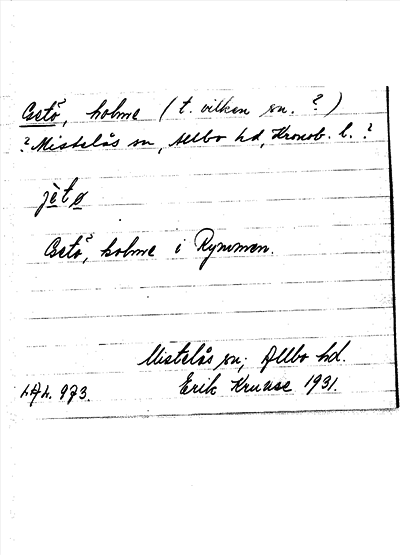 Getö, holme (t. vilken sn. ?)
? Mistelås sn, Allbo hd, Kronob. l. ?
jètø
Getö, holme i Rymmen.
Mistelås sn, Allbo hd.
Erik Kruuse 1931.
973.